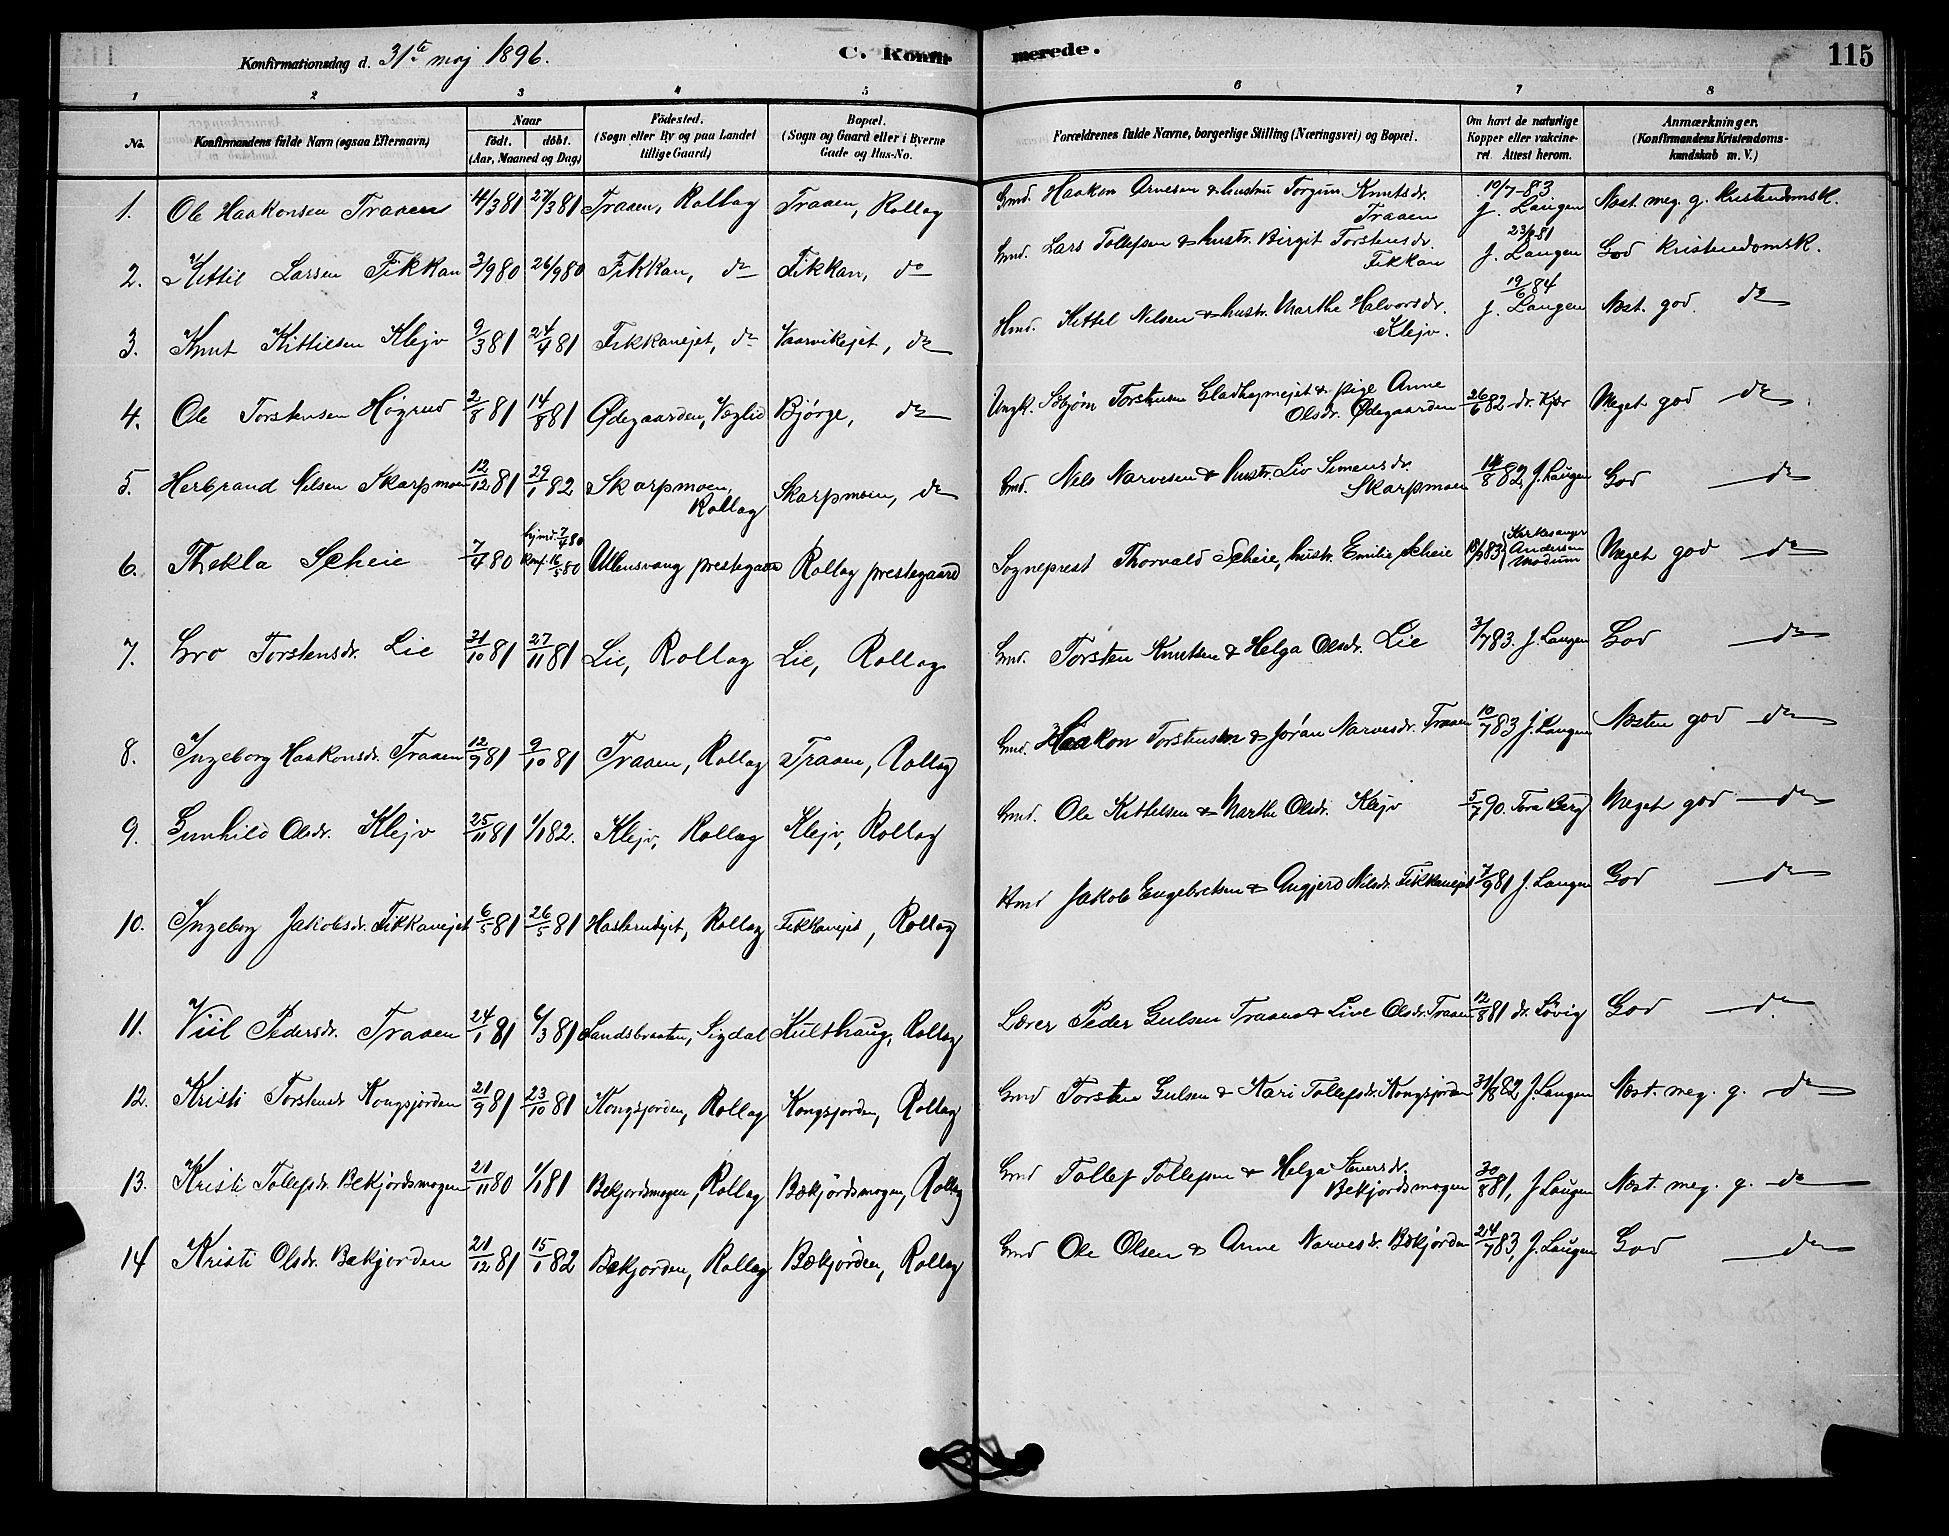 Konfirmationsdag d. 31te maj 1896.
C. Konfirmerede.
115
1 2 3 4 5 6 7 8
No.
Konfirmandens fulde Navn (ogsaa Efternavn)
Naar
født. døbt.
(Aar, Maaned og Dag)
Fødested.
(Sogn eller By og paa Landet
tillige Gaard)
Bopæl.
(Sogn og Gaard eller i Byerne
Gade og Hus-No.
Forældrenes fulde Navne, borgerlige Stilling (Næringsvei) og Bopæl.
Om havt de naturlige
Kopper eller vakcine-
ret Attest herom.
Anmærkninger.
(Konfirmandens Kristendoms-
kundskab m. V.)
1. Ole Haakonsen Traaen 14/3 81 27/3 81 Traaen, Rollag Traaen, Rollag Gmd. Haakon Arnesen & hustru Torgun Knutsdr. Traaen 10/7-83 J. Laugen Næst. meg. g. Kristendomsk.
2. Kittil Larsen Fikkan 3/9 80 26/9 80 Fikkan, do Fikkan, do Gmd. Lars Tollefsen & hustr. Birgit Torstensdr. Fikkan J. Laugen God Kristendomsk.
3. Knut Kittilsen Klejv 9/3 81 24/4 81 Fikkanejet, do Vaarvikejet, do Hmd. Kittel Nilsen & hustr. Marthe Halvorsdr. Klejv. 19/6 84 J. Laugen Næst. god do
4. Ole Torstensen Høgrud 2/8 81 14/8 81 Ødegaarden, Veglid Bjørge, do Ungk. Torstensen & pige Anne Olsdr. Ødegaarden 26/6 82 dr. Kjær Meget god do
5. Herbrand Nilsen Skarpmoen 12/12 81 29/1 82 Skarpmoen, Rollag Skarpmoen, do Gmd. Nels Narvesen & hustr. Liv Simensdr. Skarpmoen 14/8 82, J. Laugen God do
6. Thekla Scheie 7/4 80 hjmd. 7/4 80 Konf. 16/5 80 Ullensvang prestegaard Rollag prestegaard Sogneprest Thorvald Scheie, hustr. Emilie Scheie 18/9 83 Kirkesanger Andersen Modum Meget god do
7. Gro Torstensdr. Lie 31/10 81 27/11 81 Lie, Rollag Lie, Rollag Gmd. Torsten Knutsen & Helga Olsdr. Lie 3/7 83. J. Laugen God do
8. Ingeborg Haakonsdr. Traaen 12/9 81 9/10 81 Traaen, Rollag Traaen, Rollag Gmd. Haakon Torstensen & Jøran Narvesdr. Traaen 10/7 83 J. Laugen Næsten god do
9. Gunhild Olsdr. Klejv 25/11 81 1/1 82. Klejv, Rollag Klejv, Rollag Gmd. Ole Kittelsen & Marthe Olsdr. Klejv 5/7 90. Tora Berg Meget god do
10. Ingeborg Jakobsdr. Fikkanejet 6/5 81 26/5 81 Haslerudejet, Rollag Fikkanejet, Rollag Hmd Jakob Engebretsen & Angjerd Nilsdr. Fikkanejet 7/9 81 J. Laugen God do
11. Viil Pedersdr. Traaen 24/1 81 6/3 81 Sandsbraaten, Sigdal Kulthaug, Rollag Lærer Peder Gulsen Traaen & Live Olsdr. Traaen 12/8 81 dr. Løvig God do
12. Kristi Torstensdr Kongsjorden 21/9 81 23/10 81 Kongsjorden, Rollag Kongsjorden, Rollag Gmd Torsten Gulsen & Kari Tollefsdr. Kongsjorden 31/8 82 J. Laugen Næst. meg. g. do
13. Kristi Tollefsdr. Bekjordsmogen 21/11 80 1/1 81 Bekjordsmogen, Rollag Bækjordsmogen, Rollag Gmd Tollef Tollefsen & Helga Steversdr. Bekjordsmogen 30/8 81, J. Laugen Næst. meg. g. do
14 Kristi Olsdr. Bækjorden 21/12 81 15/1 82 Bækjorden, Rollag Bækjorden, Rollag Gmd Ole Olsen & Anne Narvesdr. Bækjørden 24/7 83, J. Laugen God do